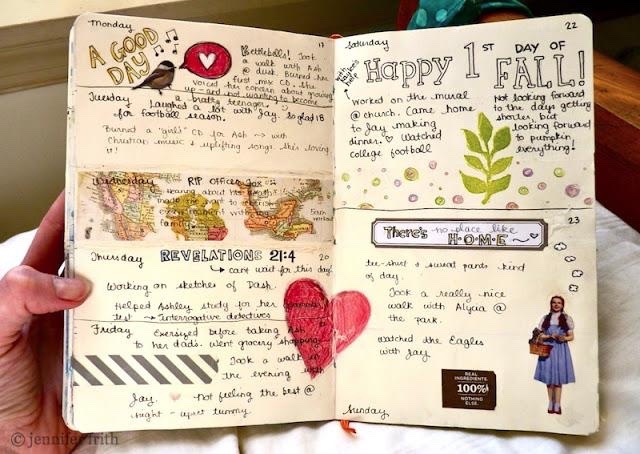 Monday
17
A GOOD DAY
Kettlebells! Took
a walk with Ash
@ dusk. Burned her
first mix CD. She
voiced her concern about growing
up and not wanting to become
a bratty teenager.
Tuesday
18
Laughed a lot with Jay. So glad
for football season.
Burned a "girls" CD for Ash --> with
Christian music & uplifting songs. She's loving
it!
Wednesday
RIP Officer
hearing about his
made me want to cherish
every moment with my
family.
Thursday
20
REVELATIONS 21:4
can't wait for this day!
Working on sketches of Dash.
Helped Ashley study for her
test → Interrogative detectives
Friday
Exersized before taking Ash
to her dads. Went grocery shopping
Took a walk in
the evening with
Jay. not feeling the best @
night - upset tummy
Saturday
22
Happy 1ST DAY OF
FALL!
Worked on the mural
@ church. Came home
to Jay making
dinner. Watched
college football
Not looking forward
to the days getting
shorter, but
looking forward
to pumpkin
everything!
23
There's no place like
H·O·M·E
tee-shirt & sweat pants kind
of day.
Took a really nice
walk with Alycia @
the park.
Watched the Eagles
with Jay
REAL
INGREDIENTS.
100%
NOTHING
ELSE.
Sunday
© jennifer frith